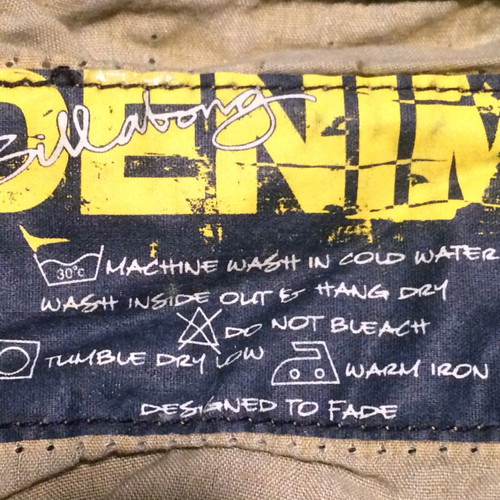 DENIM
Billabong
30°C MACHINE WASH IN COLD WATER
WASH INSIDE OUT & HANG DRY
DO NOT BLEACH
TUMBLE DRY LOW WARM IRON
DESIGNED TO FADE